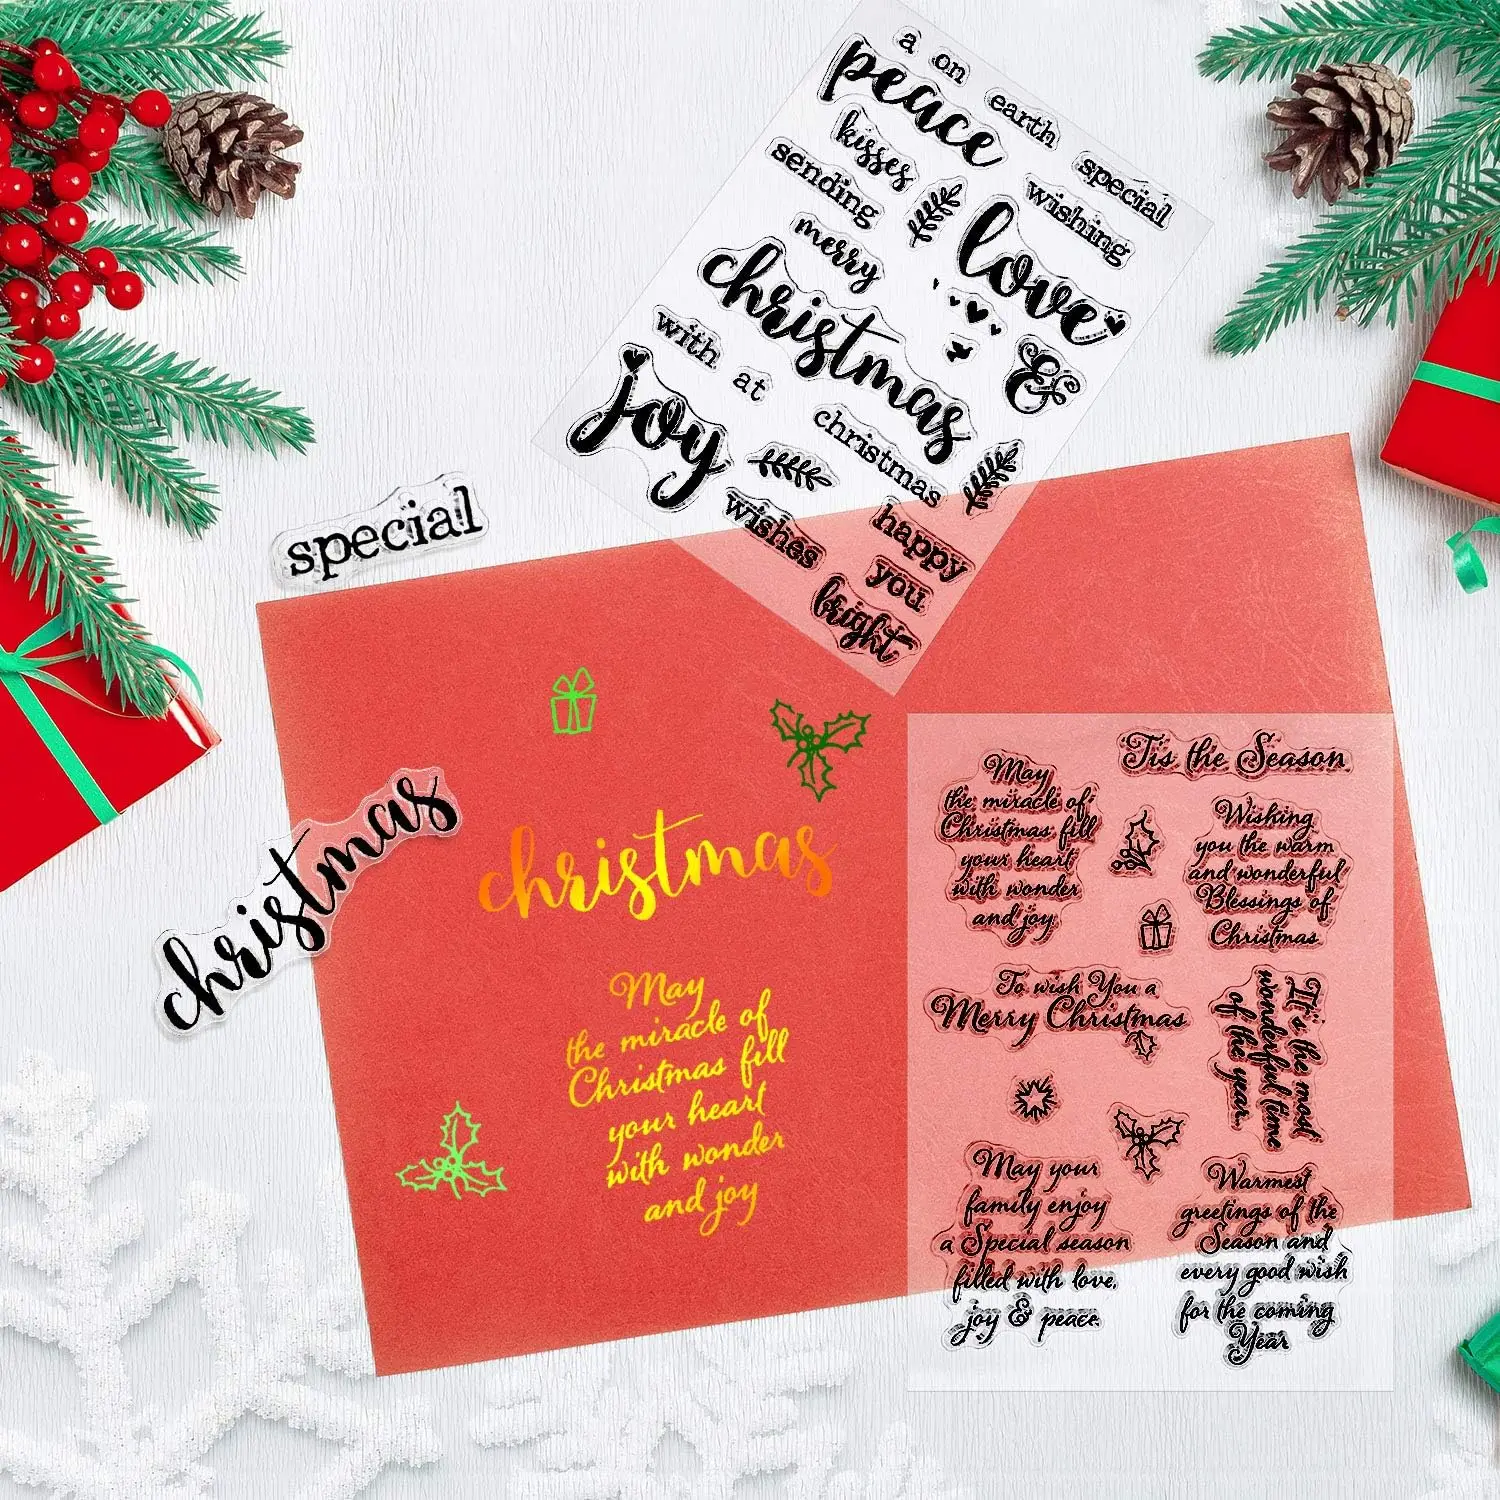 a
on
earth
special
peace
kisses
wishing
sending
love
merry
christmas
&
with
at
joy
christmas
wishes
happy
you
bright
special
christmas
christmas
May
the miracle of
Christmas fill
your heart
with wonder
and joy
'Tis the Season
May
the miracle of
Christmas fill
your heart
with wonder
and joy
Wishing
you the warm
and wonderful
Blessings of
Christmas
To wish You a
Merry Christmas
It's the most
wonderful time
of the year.
May your
family enjoy
a Special season
filled with love,
joy & peace.
Warmest
greetings of the
Season and
every good wish
for the coming
Year